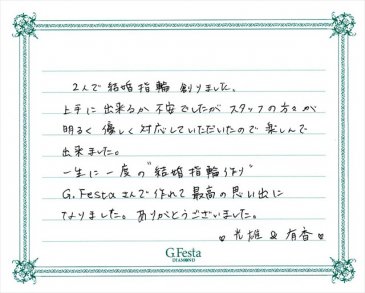 2人で結婚指輪創りました。
上手に出来るか不安でしたがスタッフの方々が
明るく優しく対応していただいたので楽しんで
出来ました。
一生に一度の"結婚指輪作り"
G.Festaさんで作れて最高の思い出に
なりました。ありがとうございました。
♥光雄&有香♥
G.Festa
DIAMOND